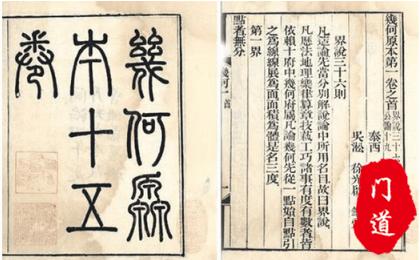 幾何原
本十五
卷
幾何原本第一卷之首 界說三十六
公論十九
泰西
吳淞 徐光啓
界說三十六則
凡造論先當分別解說論中所用名目故曰界說
凡歷法地理樂律算章技藝工巧諸事有度有數者皆
依賴十府中幾何府屬凡論幾何先從一點始自點引
之為線線展為面面積為體是名三度
第一界
點者無分
门道